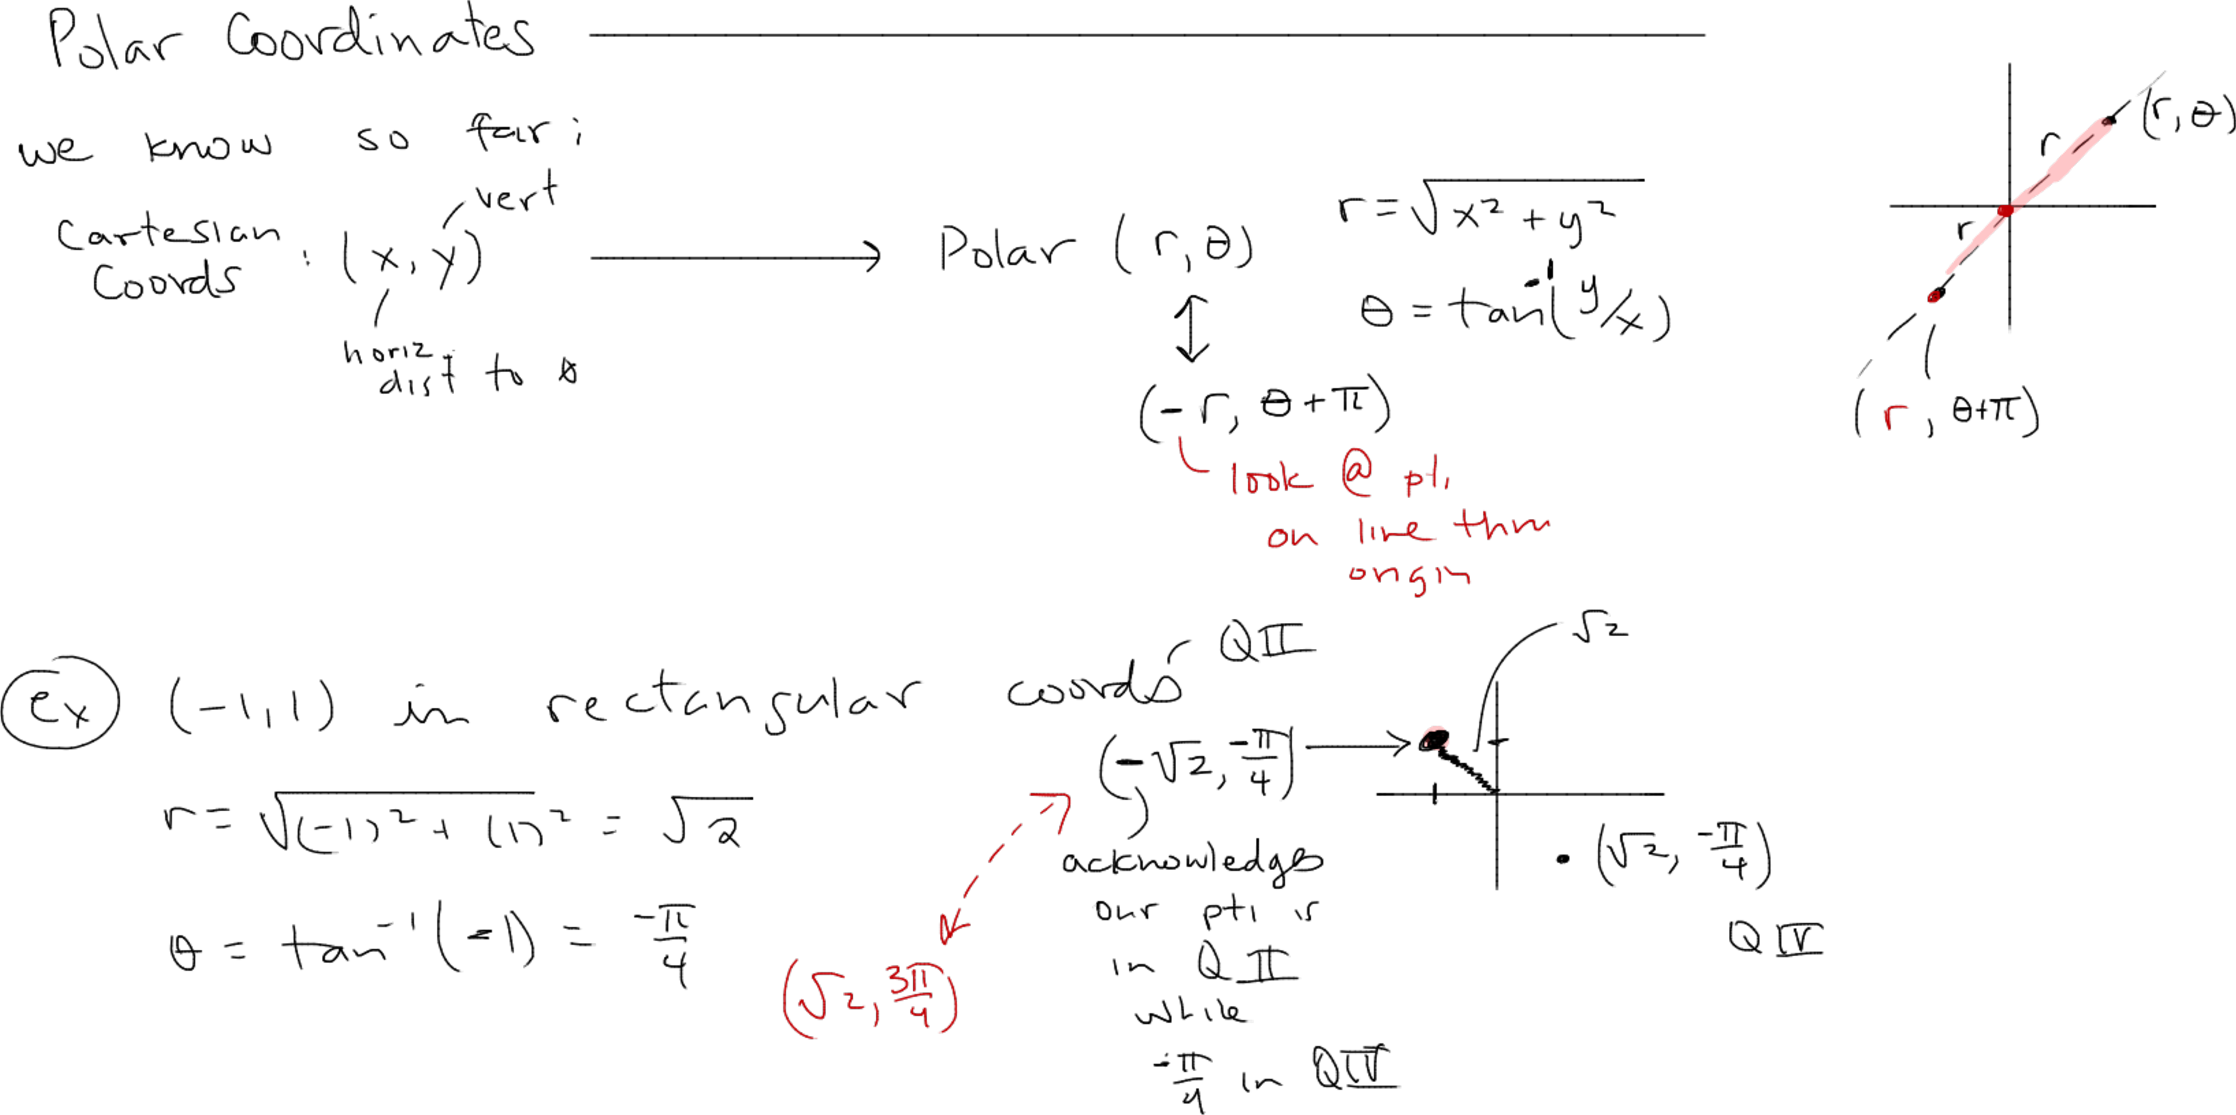 Polar Coordinates
we know so far:
Cartesian Coords : (x, y)
vert
horiz. dist to
Polar (r, θ)
r = √x² + y²
θ = tan⁻¹(y/x)
(-r, θ+π)
look @ pt. on line thru origin
(r, θ)
r
r
(r, θ+π)
Ex (-1,1) in rectangular coords
QII
r = √(-1)² + (1)² = √2
θ = tan⁻¹(-1) = -π/4
(√2, 3π/4)
(-√2, -π/4)
acknowledges
our pt. is
in QII
while
-π/4 in QIV
√2
(√2, -π/4)
QIV